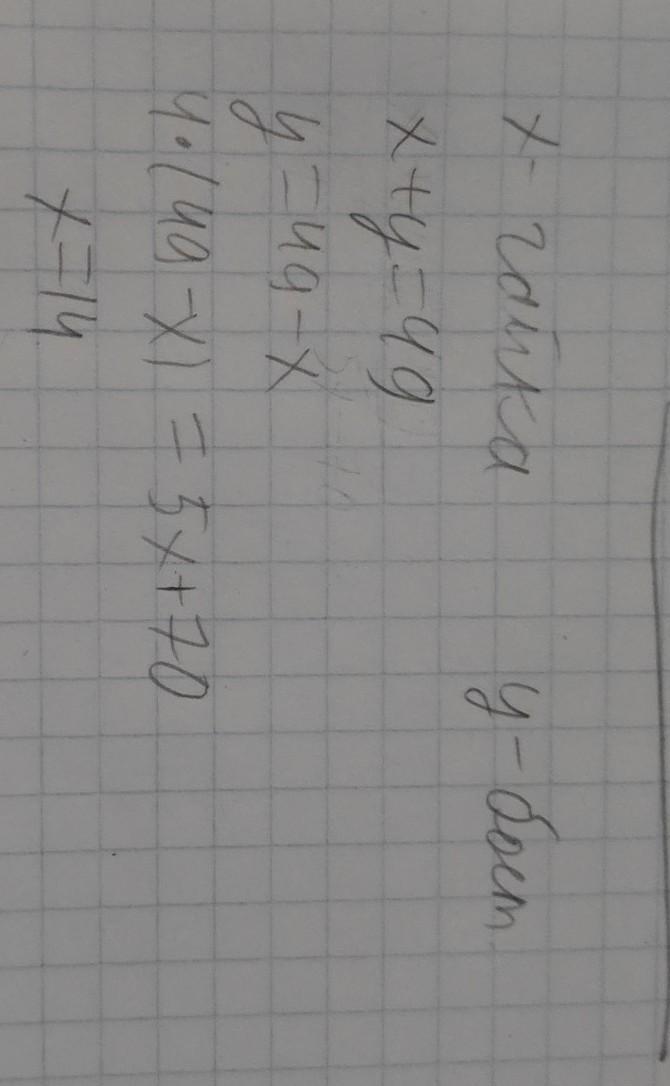 x - гайка y - болт
x+y=49
y=49-x
4·(49-x)=5x+70
x=14